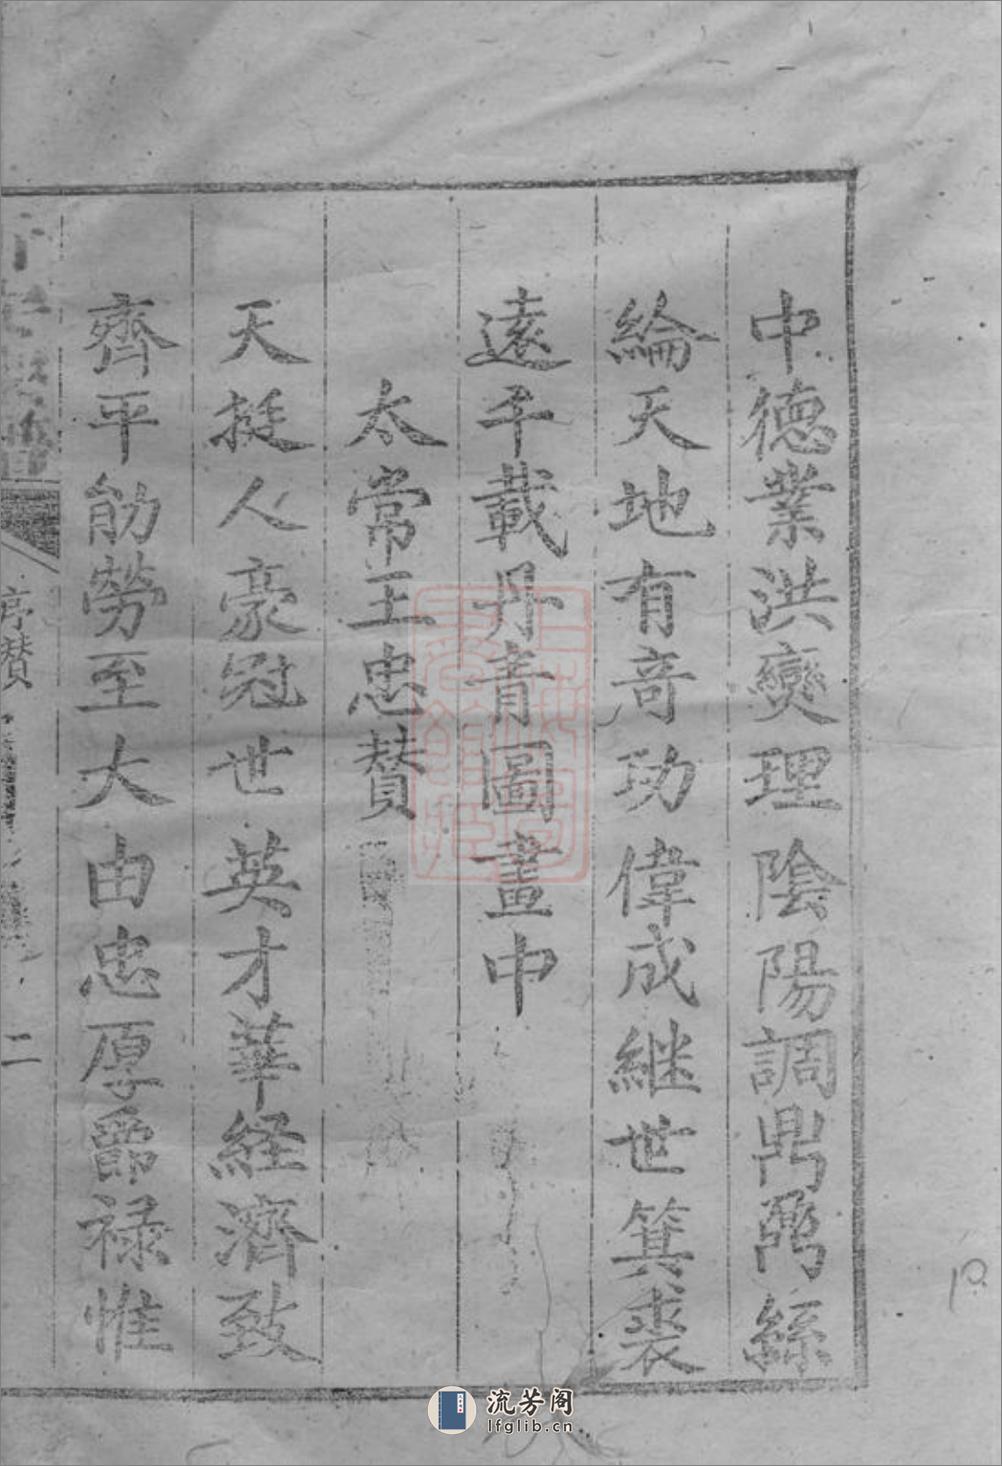 中德業洪燮理陰陽調鼎鼐絲
綸天地有竒功偉成継世箕裘
遠千載丹青圖畫中
太常王忠賛
天挺人豪冠世英才華経濟致
齊平觔勞至大由忠厚爵禄惟
序賛
二
流芳阁
lfglib.cn